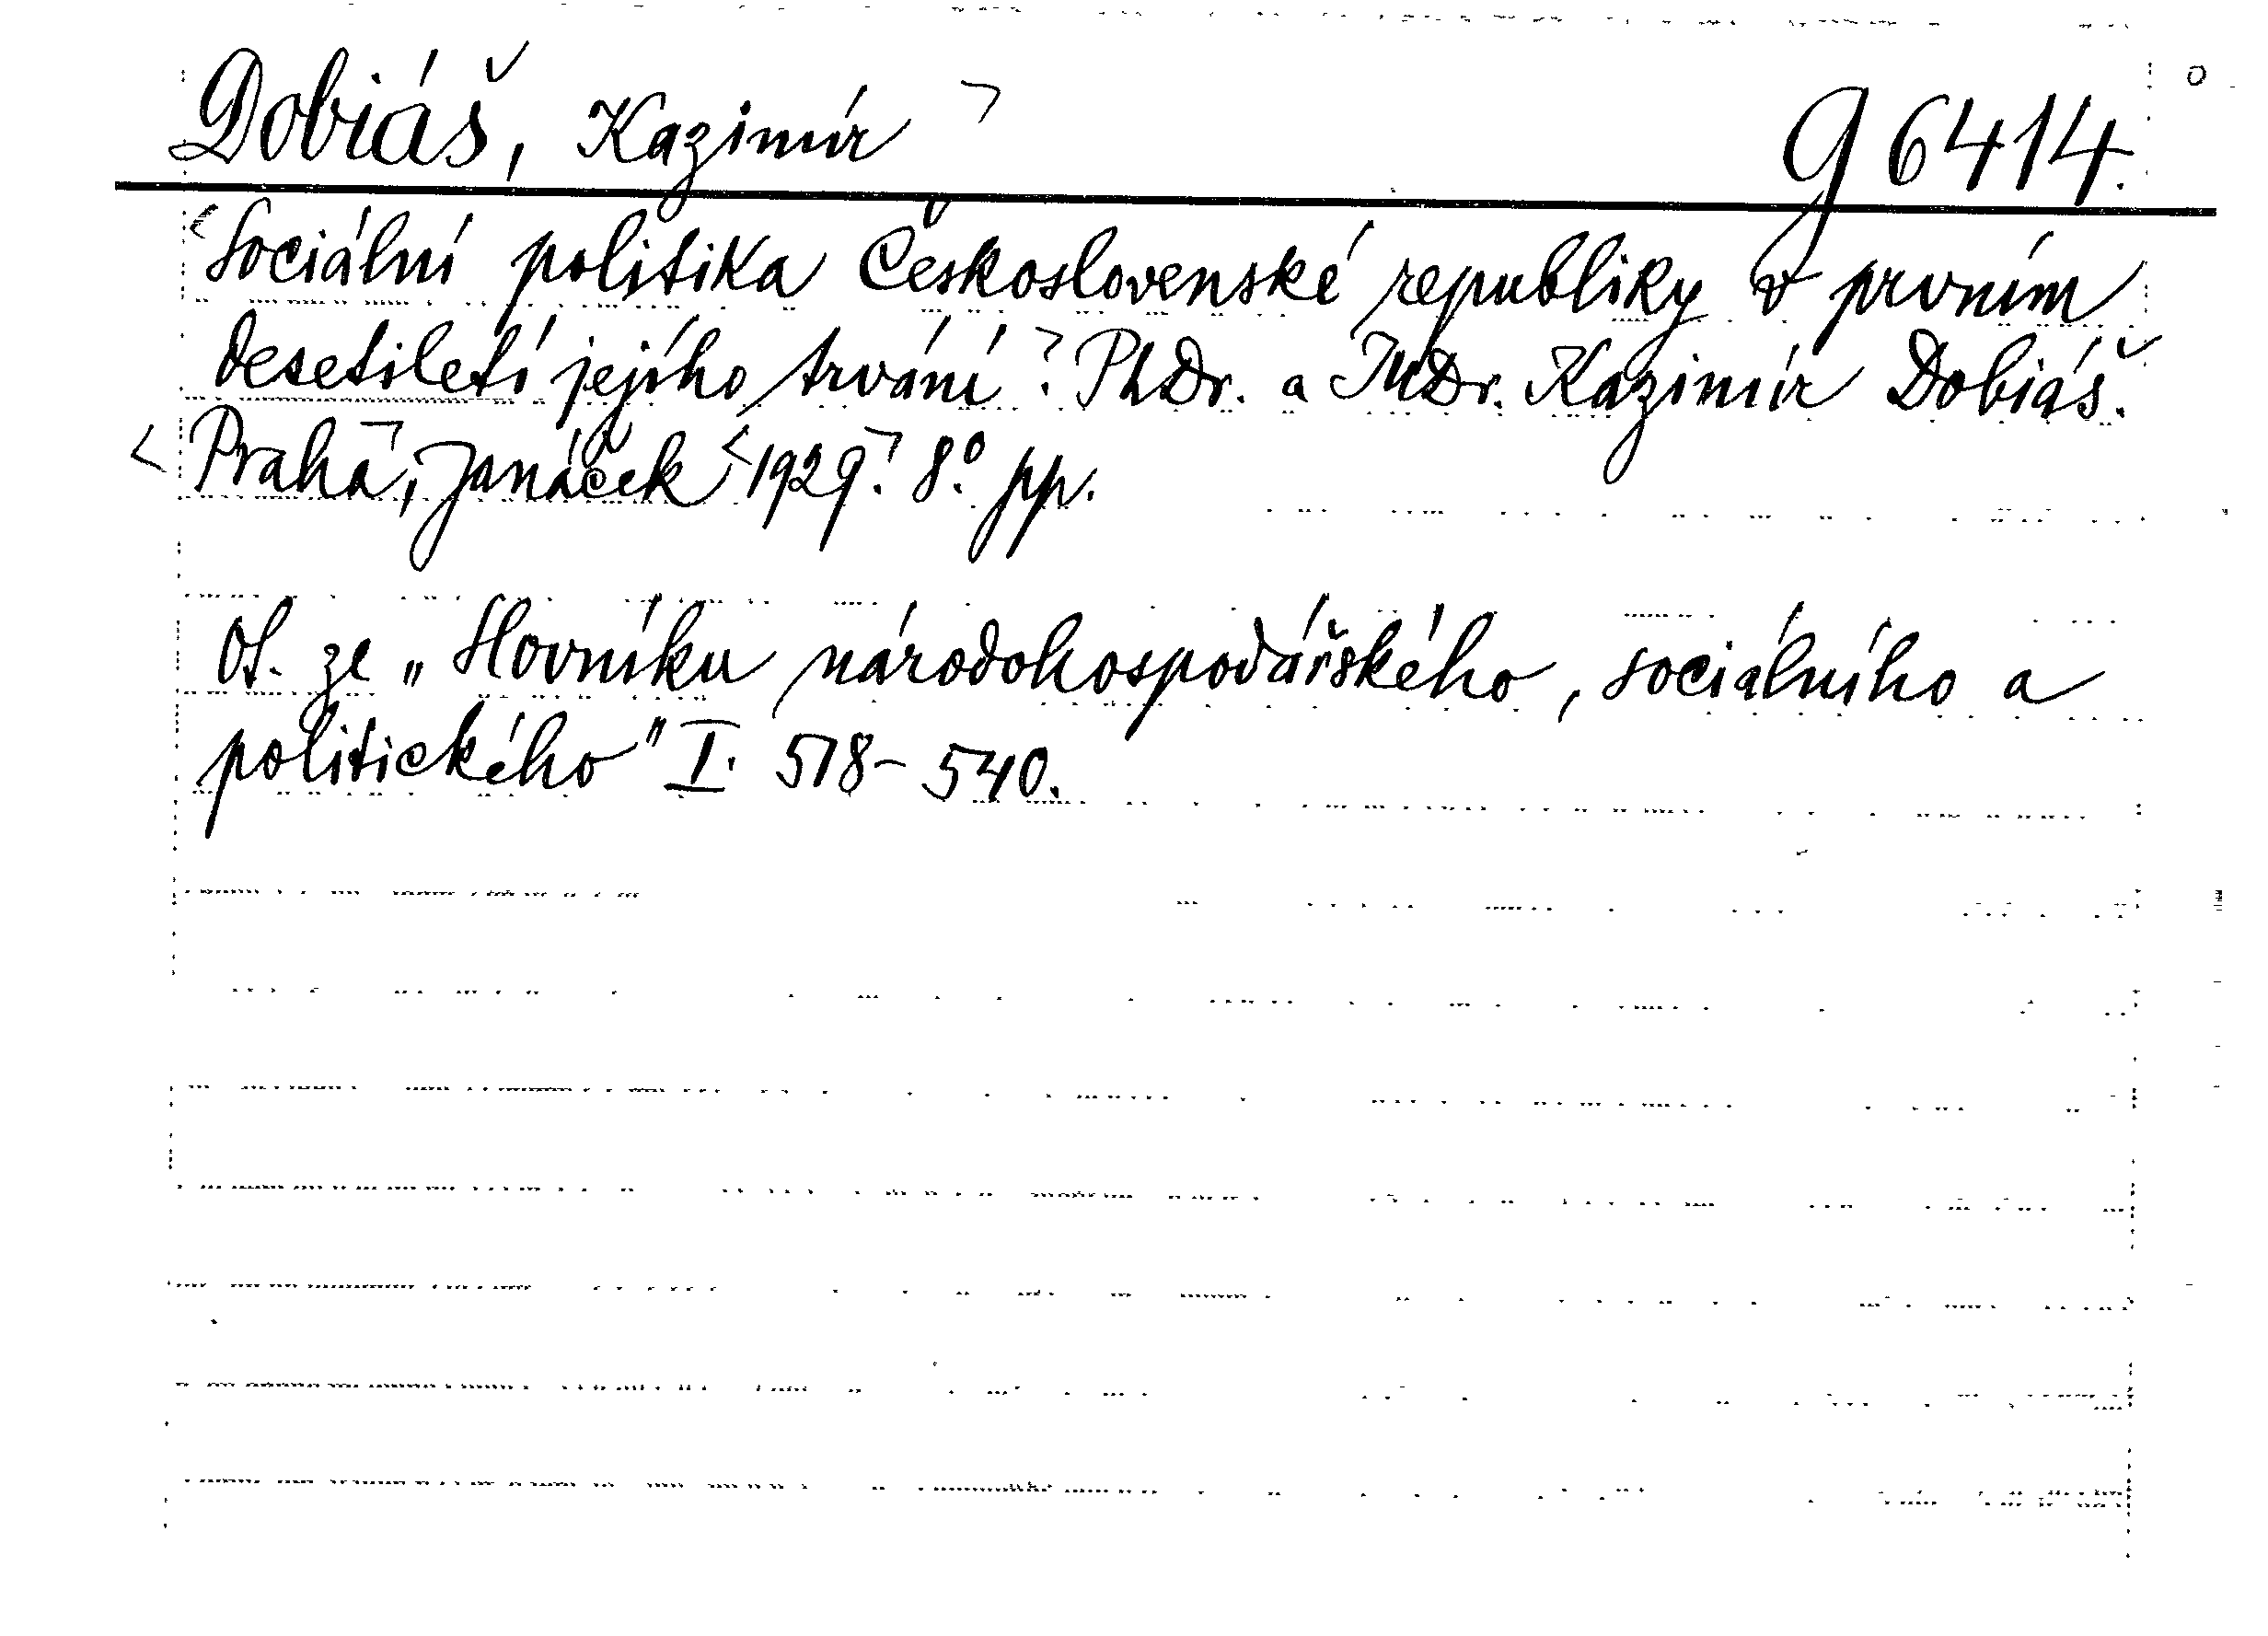 Dobiáš, Kazimír g 6414.
Sociální politika Československé republiky v prvním
desetiletí jejího trvání. PhDr. a JUDr. Kazimír Dobiáš.
Praha, Janáček 1929. 8° pp.
Ot. ze „Slovníku národohospodářského, sociálního a
politického" I. 518-540.